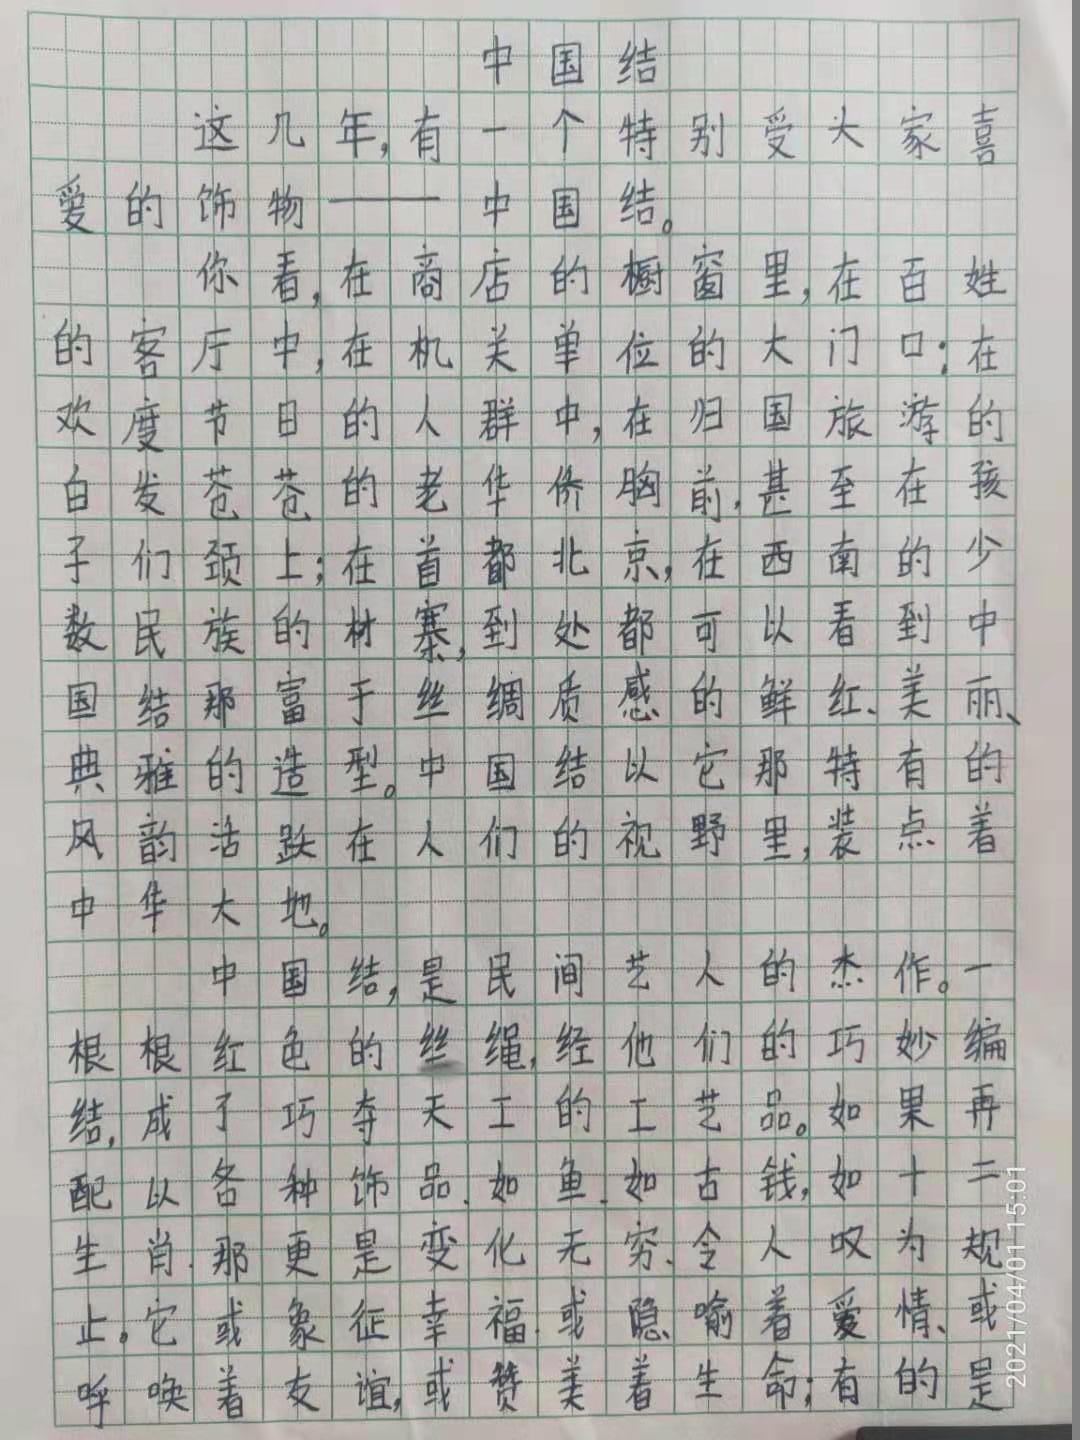 中国结
这几年,有一个特别受大家喜
爱的饰物——中国结。
你看,在商店的橱窗里,在百姓
的客厅中,在机关单位的大门口;在
欢度节日的人群中,在归国旅游的
白发苍苍的老华侨胸前,甚至在孩
子们颈上;在首都北京,在西南的少
数民族的材寨,到处都可以看到中
国结那富于丝绸质感的鲜红、美丽、
典雅的造型。中国结以它那特有的
风韵活跃在人们的视野里,装点着
中华大地。
中国结,是民间艺人的杰作。一
根根红色的丝绳,经他们的巧妙编
结,成了巧夺天工的工艺品。如果再
配以各种饰品、如鱼、如古钱,如十二
生肖、那更是变化无穷、令人叹为规
止。它或象征幸福、或隐喻着爱情、或
呼唤着友谊,或赞美着生命;有的是
2021/04/01 15:01